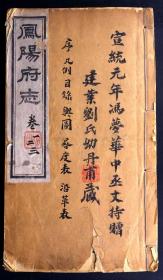 宣統元年馮夢華中丞文持贈
建業劉氏幼丹甫藏
序 凡例 目錄 輿圖 晷度表 沿革表
鳳陽府志
卷一二三